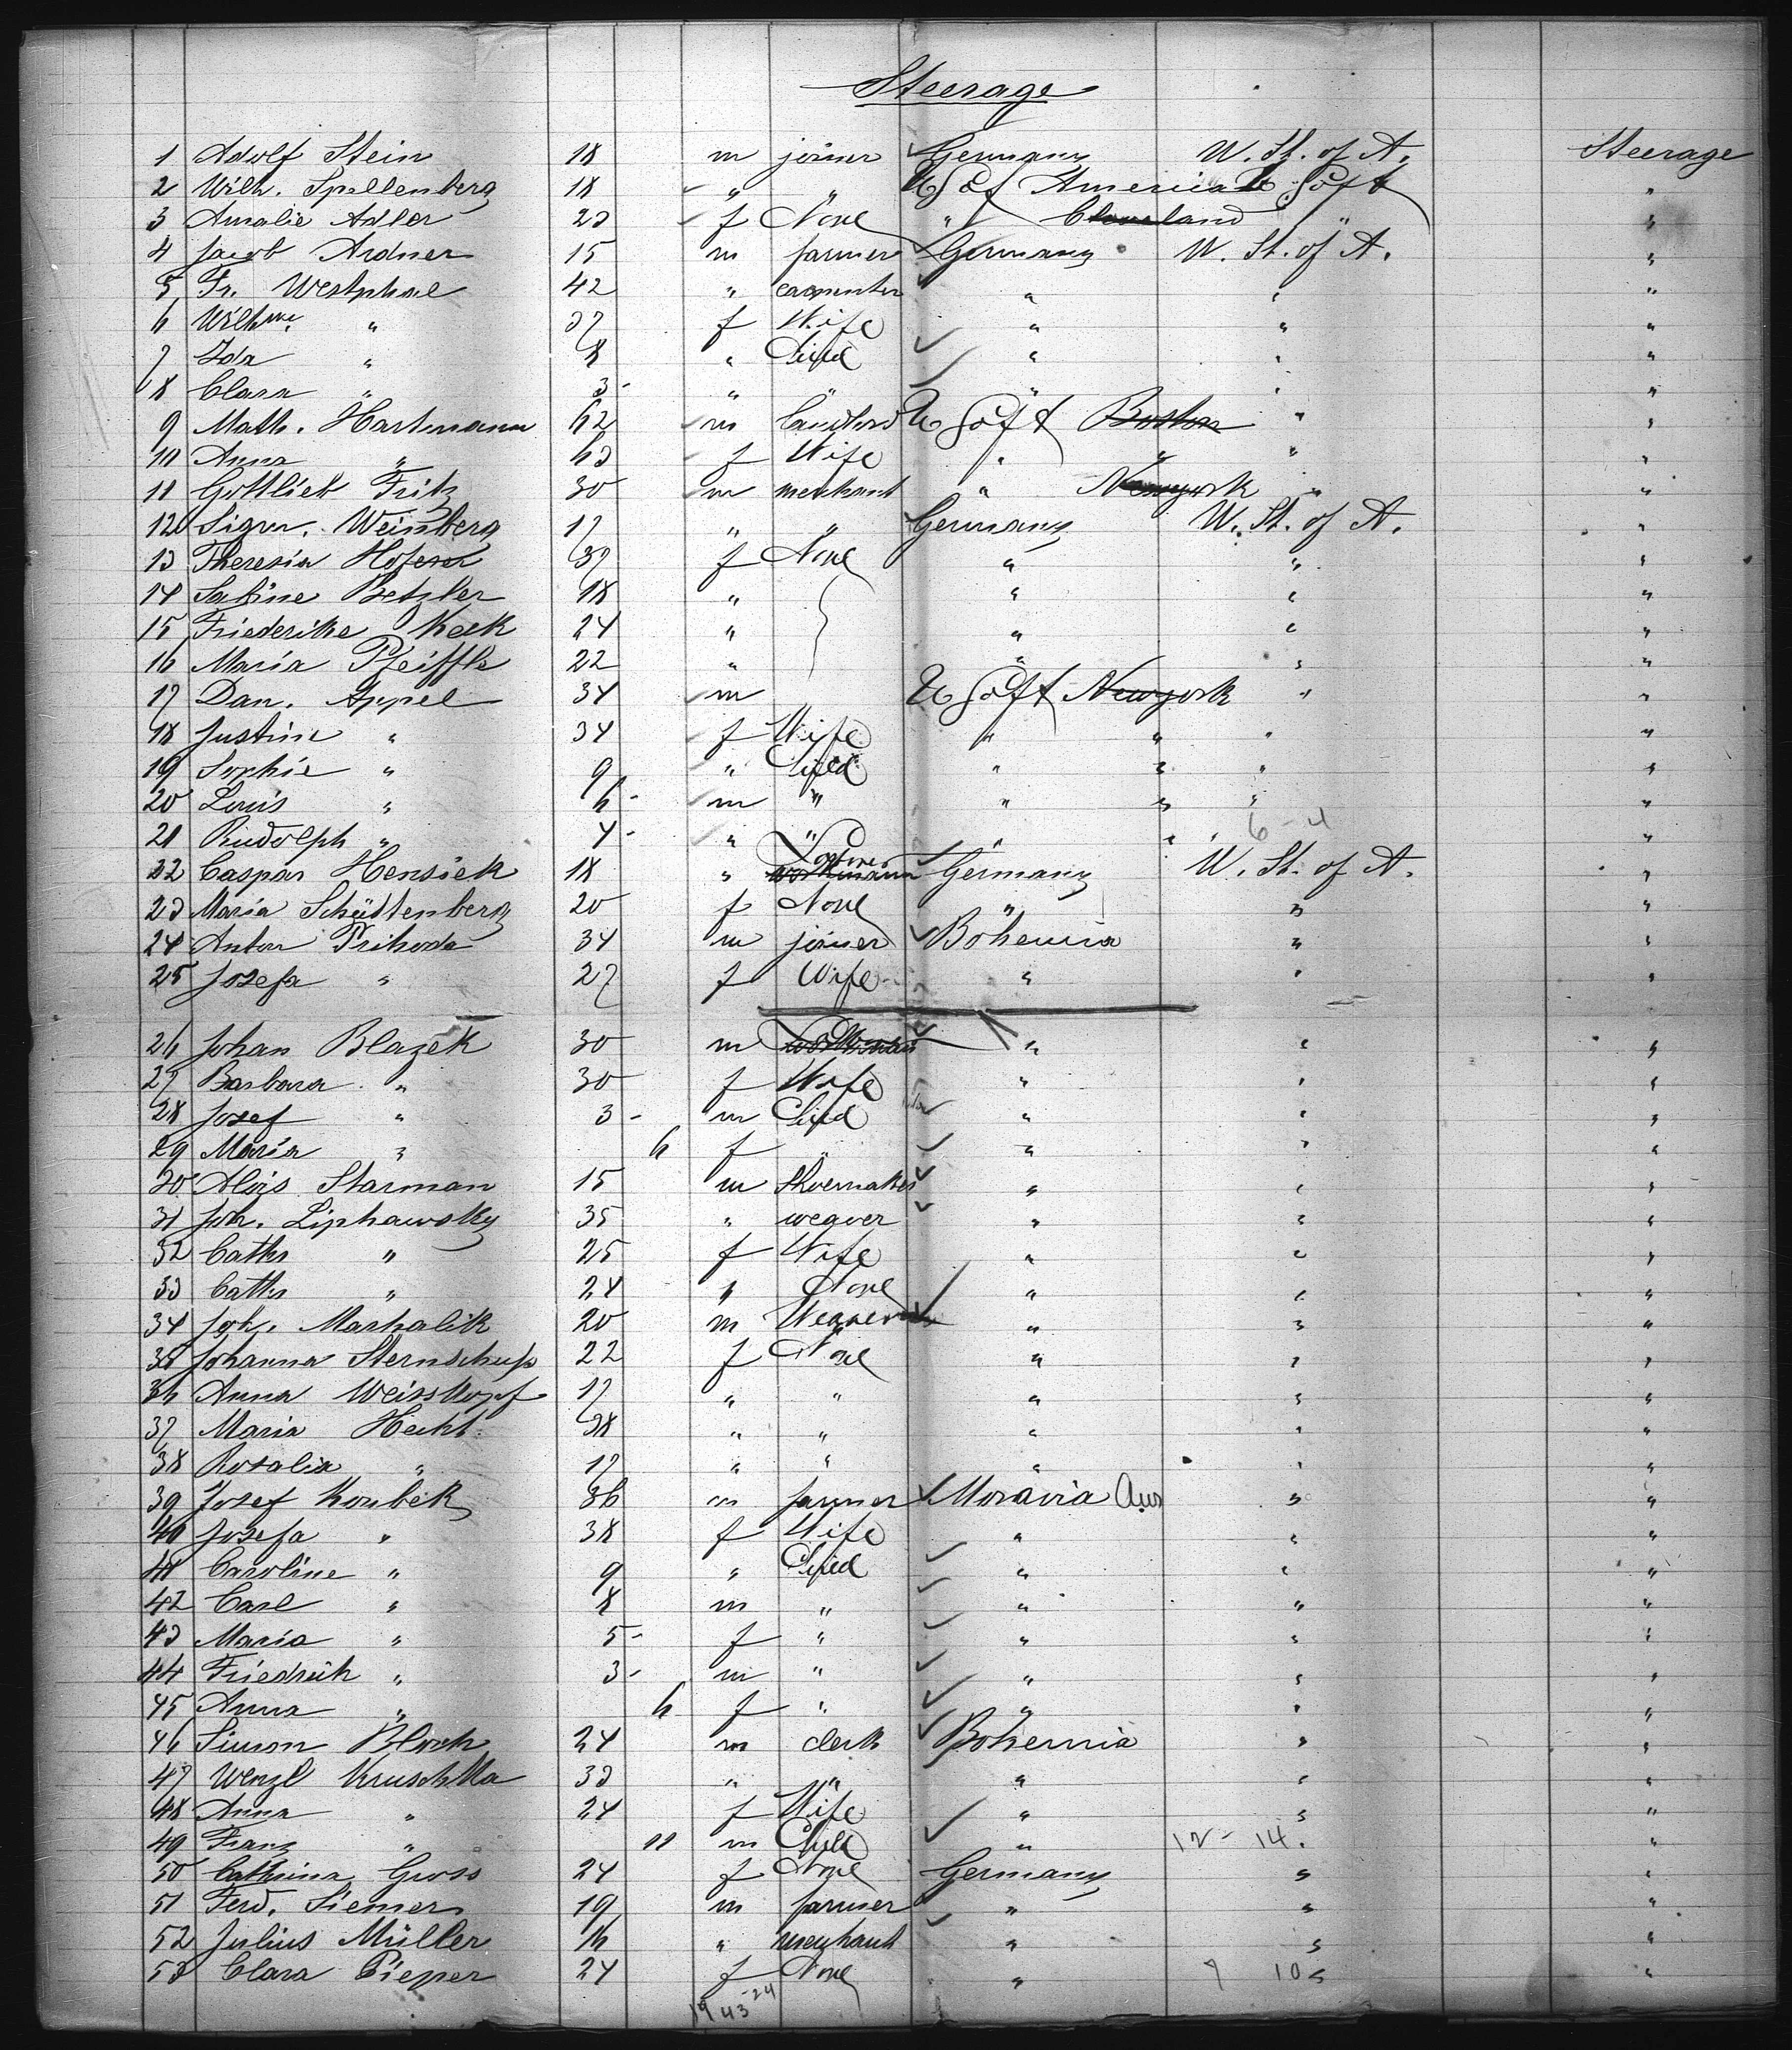 Steerage
1 Adolf Stein 18 m joiner Germany U. St. of A. Steerage
2 Wilh. Spellenberg 18 " " U S of America U S of A "
3 Amalie Adler 23 f None " Cleveland " "
4 Jacob Ardner 15 m farmer Germany U. St. of A. "
5 Fr. Westphal 42 " carpenter " " "
6 Wilhme. " 37 f Wife " " "
7 Ida " 8 " Child " " "
8 Clara " 3 - " " " "
9 Math. Hartmann 62 m landlord U S of A Boston " "
10 Anna " 63 f Wife " " " "
11 Gottlieb Fritz 30 m merchant " Newyork " "
12 Sigm. Weinberg 17 " " Germany U. St. of A. "
13 Theresia Hoferer 37 f None " " "
14 Sabine Betzler 18 " " " "
15 Friederike Keck 24 " " " "
16 Maria Pfeiffle 22 " " " "
17 Dan. Appel 34 m U S of A Newyork " "
18 Justine " 34 f Wife " " " "
19 Sophie " 9 " Child " " " "
20 Louis " 6 - m " " " " "
21 Rudolph " 4 - " " " " " "
6 - 4
22 Caspar Hensiek 18 " workmann Germany U. St. of A. "
23 Maria Schüttenberg 20 f None " " "
24 Anton Prihoda 34 m joiner Bohemia " "
25 Josefa " 27 f Wife " " "
26 Johan Blazek 30 m workman " " "
27 Barbara " 30 f Wife " " "
28 Josef " 3 - m Child " " "
29 Maria " 6 f " " " "
30 Alois Starman 15 m shoemaker " " "
31 Joh. Liphawsky 35 " weaver " " "
32 Cath. " 25 f Wife " " "
33 Cath. " 24 " None " " "
34 Joh. Marhalik 20 m Weaver " " "
35 Johanna Sternschuss 22 f None " " "
36 Anna Weisskopf 17 " " " " "
37 Maria Hecht 38 " " " " "
38 Rosalia " 17 " " " " "
39 Josef Koubek 36 m farmer Moravia Aus " "
40 Josefa " 38 f Wife " " "
41 Caroline " 9 " Child " " "
42 Carl " 8 m " " " "
43 Maria " 5 - f " " " "
44 Friedrich " 3 - m " " " "
45 Anna " 6 f " " " "
46 Simon Bloch 24 m clerk Bohemia " "
47 Wenzl Kruschka 33 " " " " "
48 Anna " 24 f Wife " " "
49 Franz " 11 m Child " " "
12 - 14
50 Cathrina Gross 24 f None Germany " "
51 Ferd. Siemer 19 m farmer " " "
52 Julius Müller 16 " merchant " " "
53 Clara Pieper 24 f None " " "
7 10
19 43 - 24